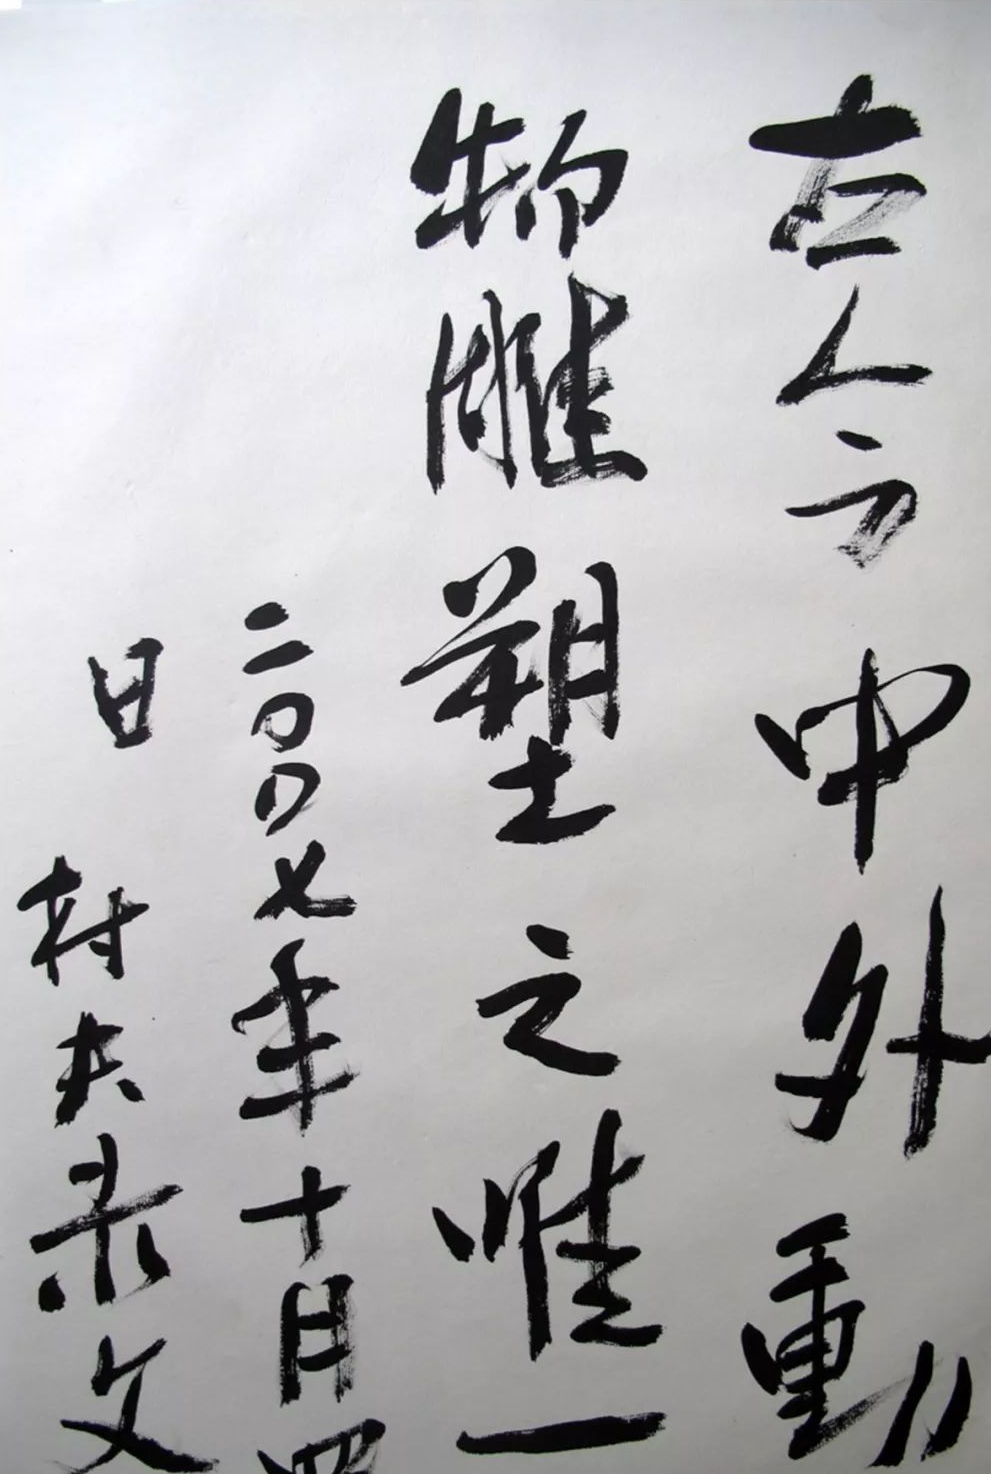 古今中外動
物雕塑之唯一
二〇〇七年十月四
日 村夫录文